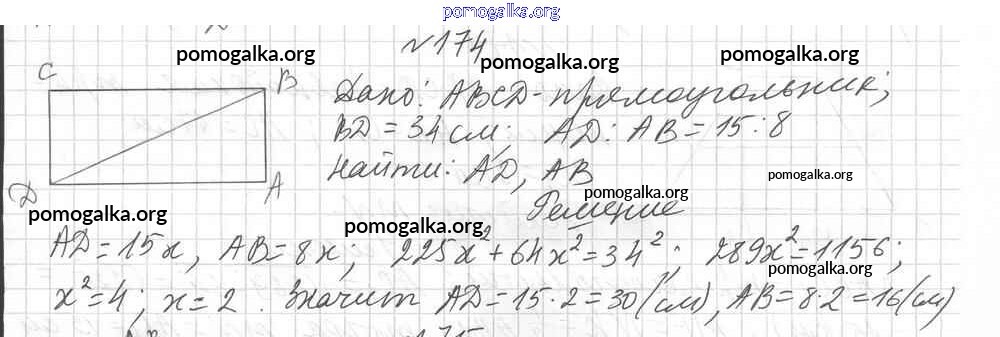 pomogalka.org
№174
pomogalka.org pomogalka.org pomogalka.org
C B
Дано: ABCD - прямоугольник;
BD = 34 см; AD : AB = 15 : 8
Найти: AD, AB
D A
pomogalka.org pomogalka.org
Решение
pomogalka.org pomogalka.org
AD = 15x, AB = 8x; 225x² + 64x² = 34²; 289x² = 1156;
pomogalka.org
x² = 4; x = 2. Значит AD = 15·2 = 30 (см), AB = 8·2 = 16 (см)